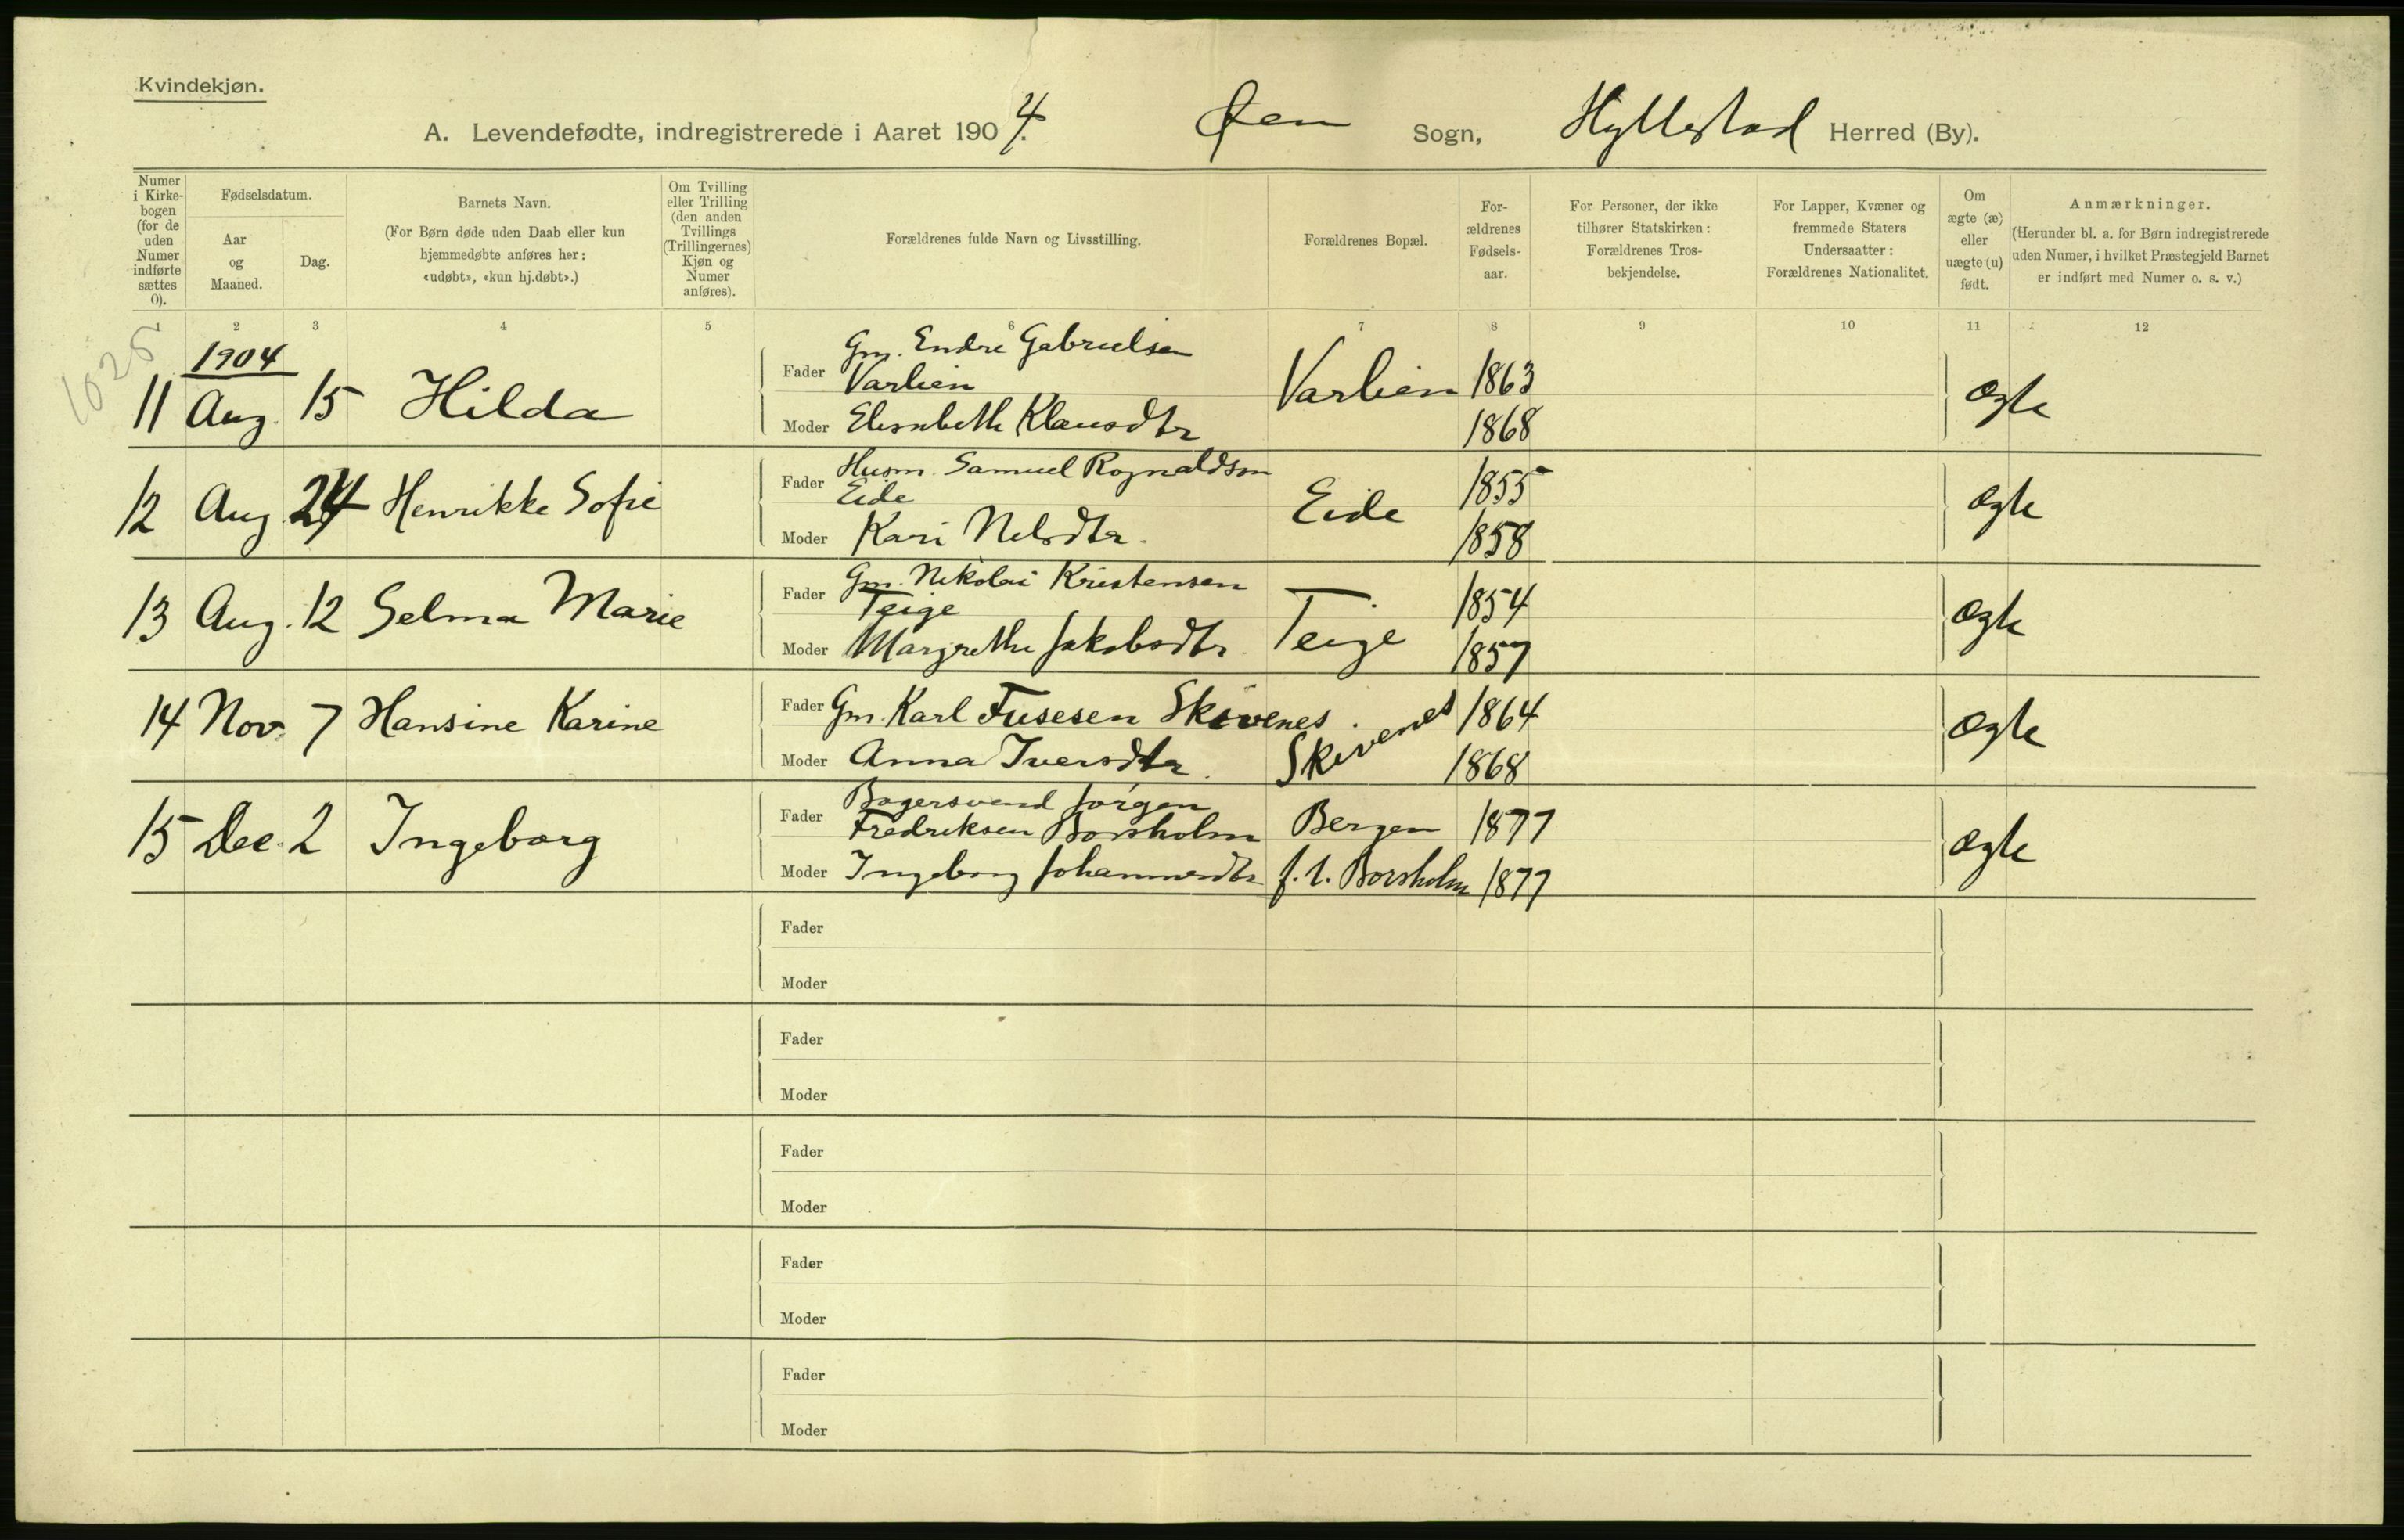 Kvindekjøn.
A. Levendefødte, indregistrerede i Aaret 1904. Øen Sogn, Hyllestad Herred (By).
Numer i Kirkebogen (for de uden Numer indførte sættes 0).
Fødselsdatum.
Aar og Maaned.
Dag.
Barnets Navn.
(For Børn døde uden Daab eller kun hjemmedøbte anføres her: «udøbt», «kun hj.døbt».)
Om Tvilling eller Trilling (den anden Tvillings (Trillingernes) Kjøn og Numer anføres).
Forældrenes fulde Navn og Livsstilling.
Forældrenes Bopæl.
Forældrenes Fødselsaar.
For Personer, der ikke tilhører Statskirken: Forældrenes Trosbekjendelse.
For Lapper, Kvæner og fremmede Staters Undersaatter: Forældrenes Nationalitet.
Om ægte (æ) eller uægte (u) født.
Anmærkninger.
(Herunder bl. a. for Børn indregistrerede uden Numer, i hvilket Præstegjeld Barnet er indført med Numer o. s. v.)
1 2 3 4 5 6 7 8 9 10 11 12
1025
1904
11 Aug. 15 Hilda
Fader Gm. Endre Gabrielsen
Varlien Varlien 1863 Ægte
Moder Elisabeth Klausdtr 1868
12 Aug. 24 Henrikke Sofie
Fader Husm. Samuel Rognaldsen
Eide Eide 1855 Ægte
Moder Kari Nelsdtr. 1858
13 Aug. 12 Selma Marie
Fader Gm. Nikolai Kristensen
Teige Teige 1854 Ægte
Moder Margrethe Jakobsdtr. 1857
14 Nov. 7 Hansine Karine
Fader Gm. Karl Fusesen Skivenes. Skivenes 1864 Ægte
Moder Anna Iversdtr. 1868
15 Dec. 2 Ingeborg
Fader Bagersvend Jørgen
Fredriksen Borsholm Bergen 1877 Ægte
Moder Ingeborg Johannesdtr f. t. Borsholm 1877
Fader
Moder
Fader
Moder
Fader
Moder
Fader
Moder
Fader
Moder